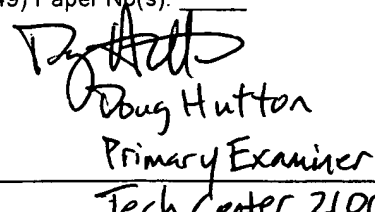 49) Paper No(s).
Doug Hutton
Primary Examiner
Tech Center 2100